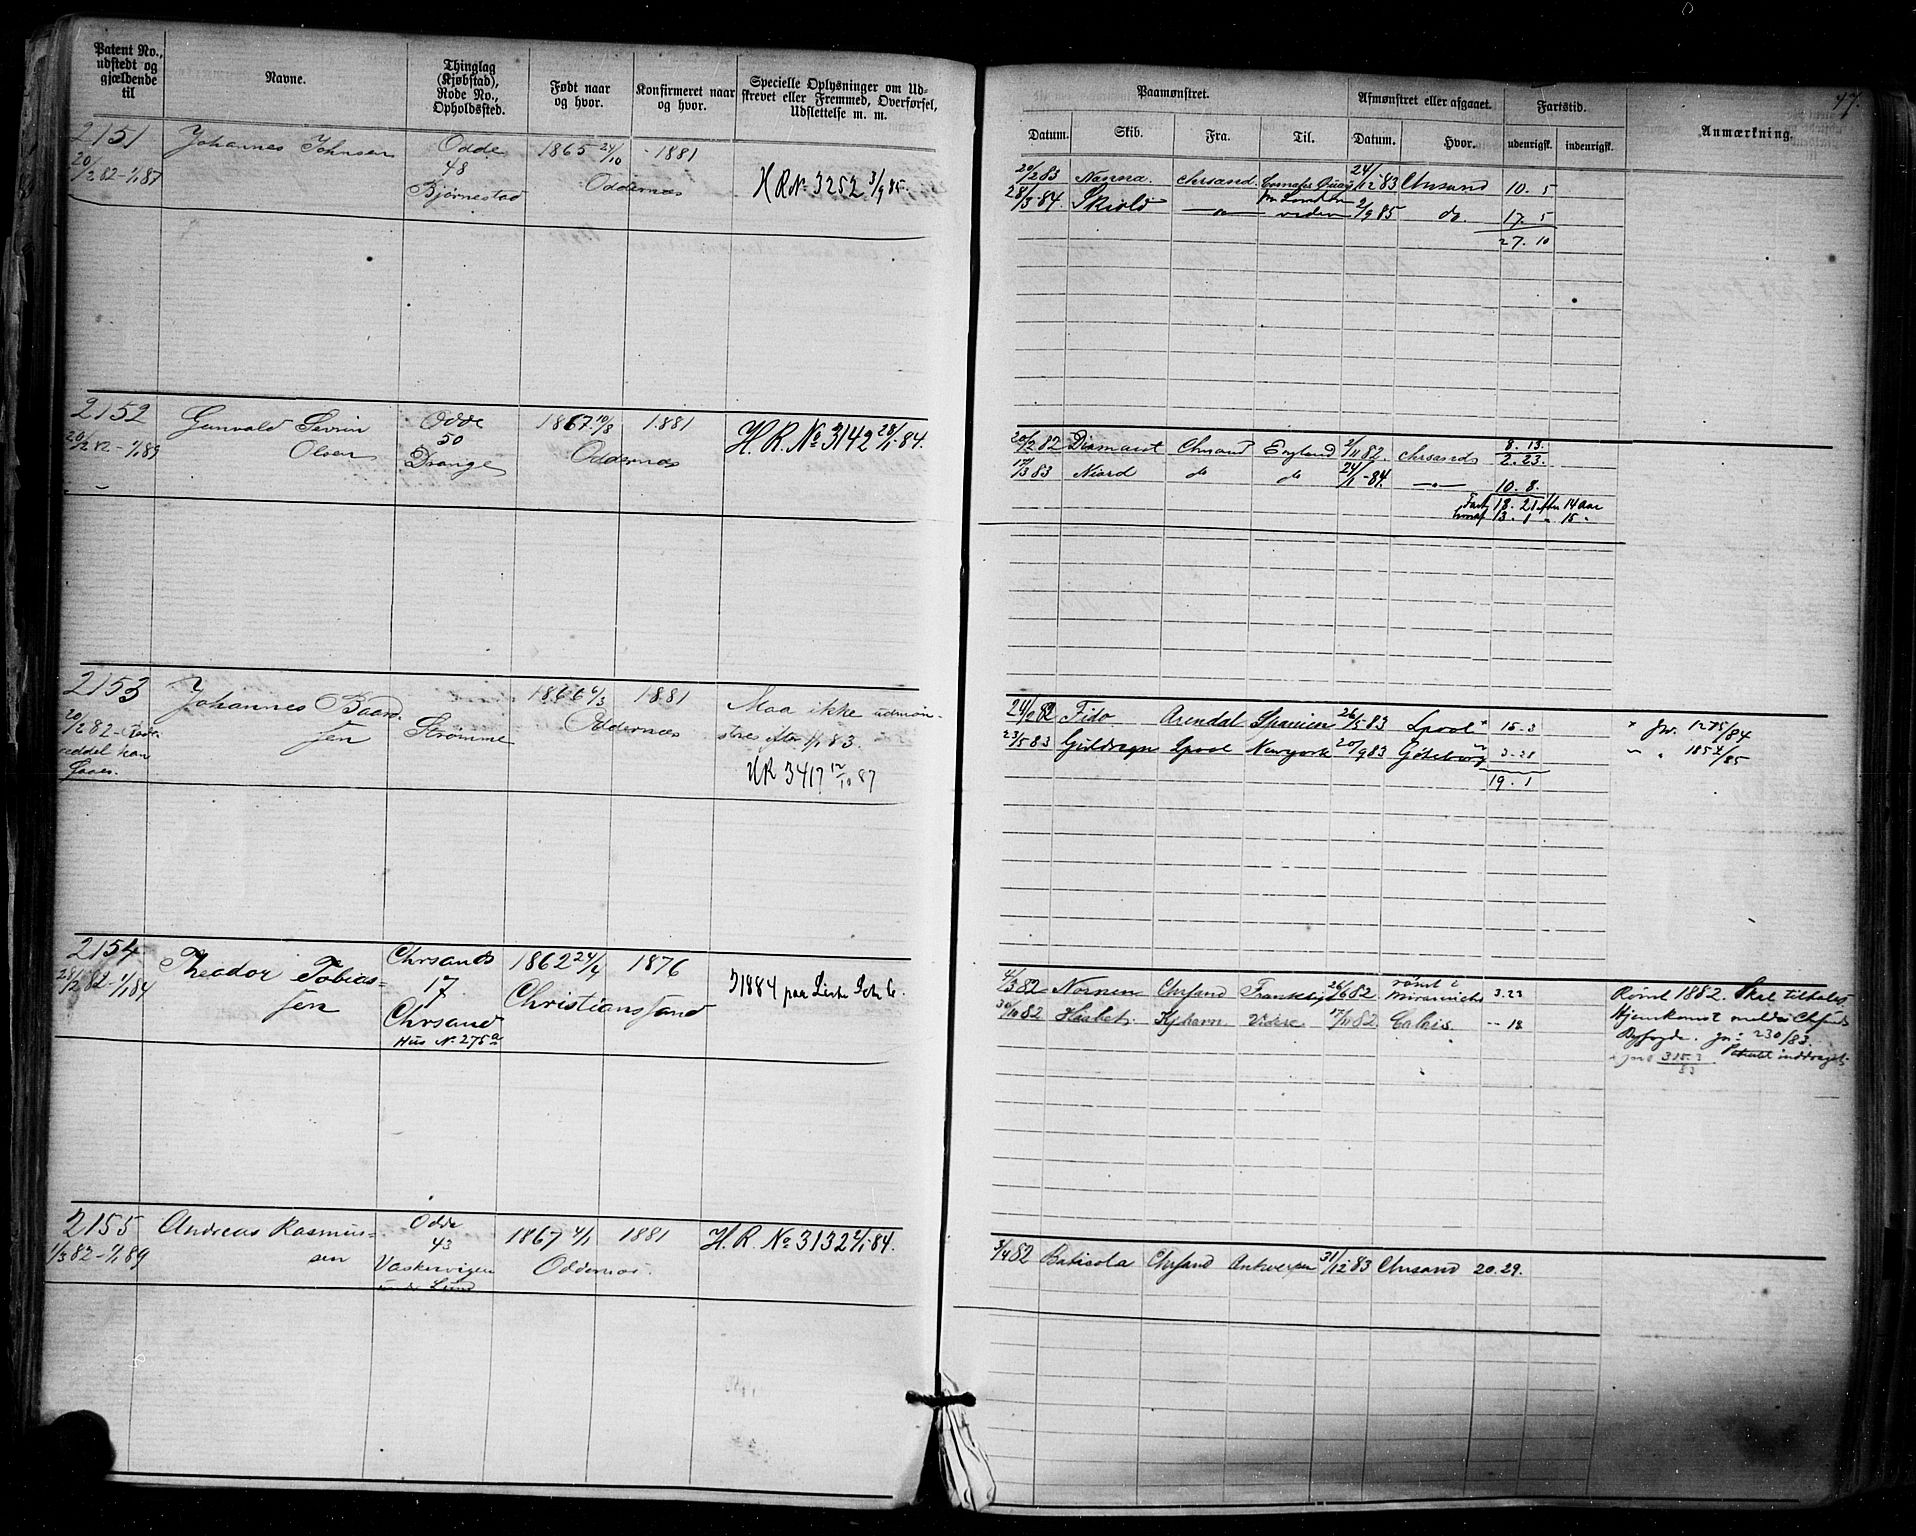 Patent No., udstedt og gjældende til
Navne.
Thinglag (Kjøbstad), Rode No., Opholdssted.
Født naar og hvor.
Konfirmeret naar og hvor.
Specielle Oplysninger om Udskrevet eller Fremmed, Overførsel, Udslettelse m. m.
2151 Johannes Johnsen Odde 1865 24/10 1881
20/2 82-1/1 87 48 Oddernæs H R No 3252 3/9 85.
Bjørnestad
2152 Gunvald Sevrin Odde 1867 10/8 1881 H. R. No 3142 28/1 84.
20/2 82-1/1 89 Olsen 50 Oddernæs
Drange
2153 Johannes Baard- 1866 6/3 1881 Maa ikke udmøn-
20/2 82 sen Strømme Oddernæs stres efter 1/1 83.
HR 3417 12/10 87
2154 Theodor Tobias- Chrsands 1862 24/4 1876
28/2 82-1/1 84 sen 17 Christianssand 1884 paa
Chrsand
Hus No. 275a
2155 Andreas Rasmus- Odde 1867 4/1 1881 H. R. No 3132 2/1 84.
1/3 82-1/1 89 sen 43 Oddernæs.
Vaskervigen
under Lund
47.
Paamønstret.
Afmønstret eller afgaaet.
Fartstid.
Anmærkning.
Datum. Skib. Fra. Til. Datum. Hvor. udenrigsk. indenrigsk.
20/2 83 Nanna. Chrsand. 24/12 83 Chrsand 10. 5
28/3 84. Skiold — " — videre 2/9 85 do. 17. 5
27. 10
20/2 82 Diamant Chrsand England 2/11 82. Chrsand 8. 13.
2. 23.
17/3 83 Niord do do 24/1 -84. — " — 10. 8.
18. 21 efter 14 Aar
13. 1 " 15 "
24/2 82 Fido Arendal Spanien 26/5 83 Lpool 15-3 Jr. 1275/84
23/5 83 Guldregn Lpool Newyork 20/9 83 Göteborg 3-28 " 1857/85
19. 1
4/3 82 Nornen Chrsand Frankrige 26/6 82 rømt i Miramichi 3. 22 Rømt 1882. Skal tiltales
30/10 82 Haabet Kjhavn Videre 17/11 82 Calais. -- 18 Hjemkomst meldes Chrsands
Byfogde. Jr: 230/83.
Patent inddraget.
3/4 82 Chrsand Antwerpen 31/12 83 Chrsand 20. 29.